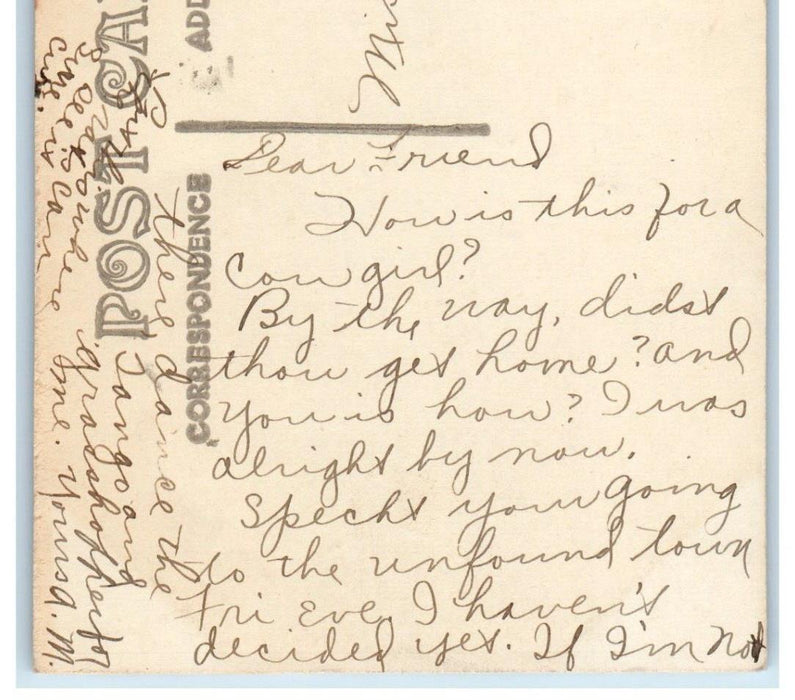 POST CA
ADD
CORRESPONDENCE
Mis
Dear Friend
How is this for a
Cow girl?
By the way, didst
thou get home? and
you is how? I was
alright by now.
Speckt your going
to the unfound town
Fri Eve I haven't
decided yet. If I'm not
there dance the
Tango and
grasshopper for
me. Yours A. M.